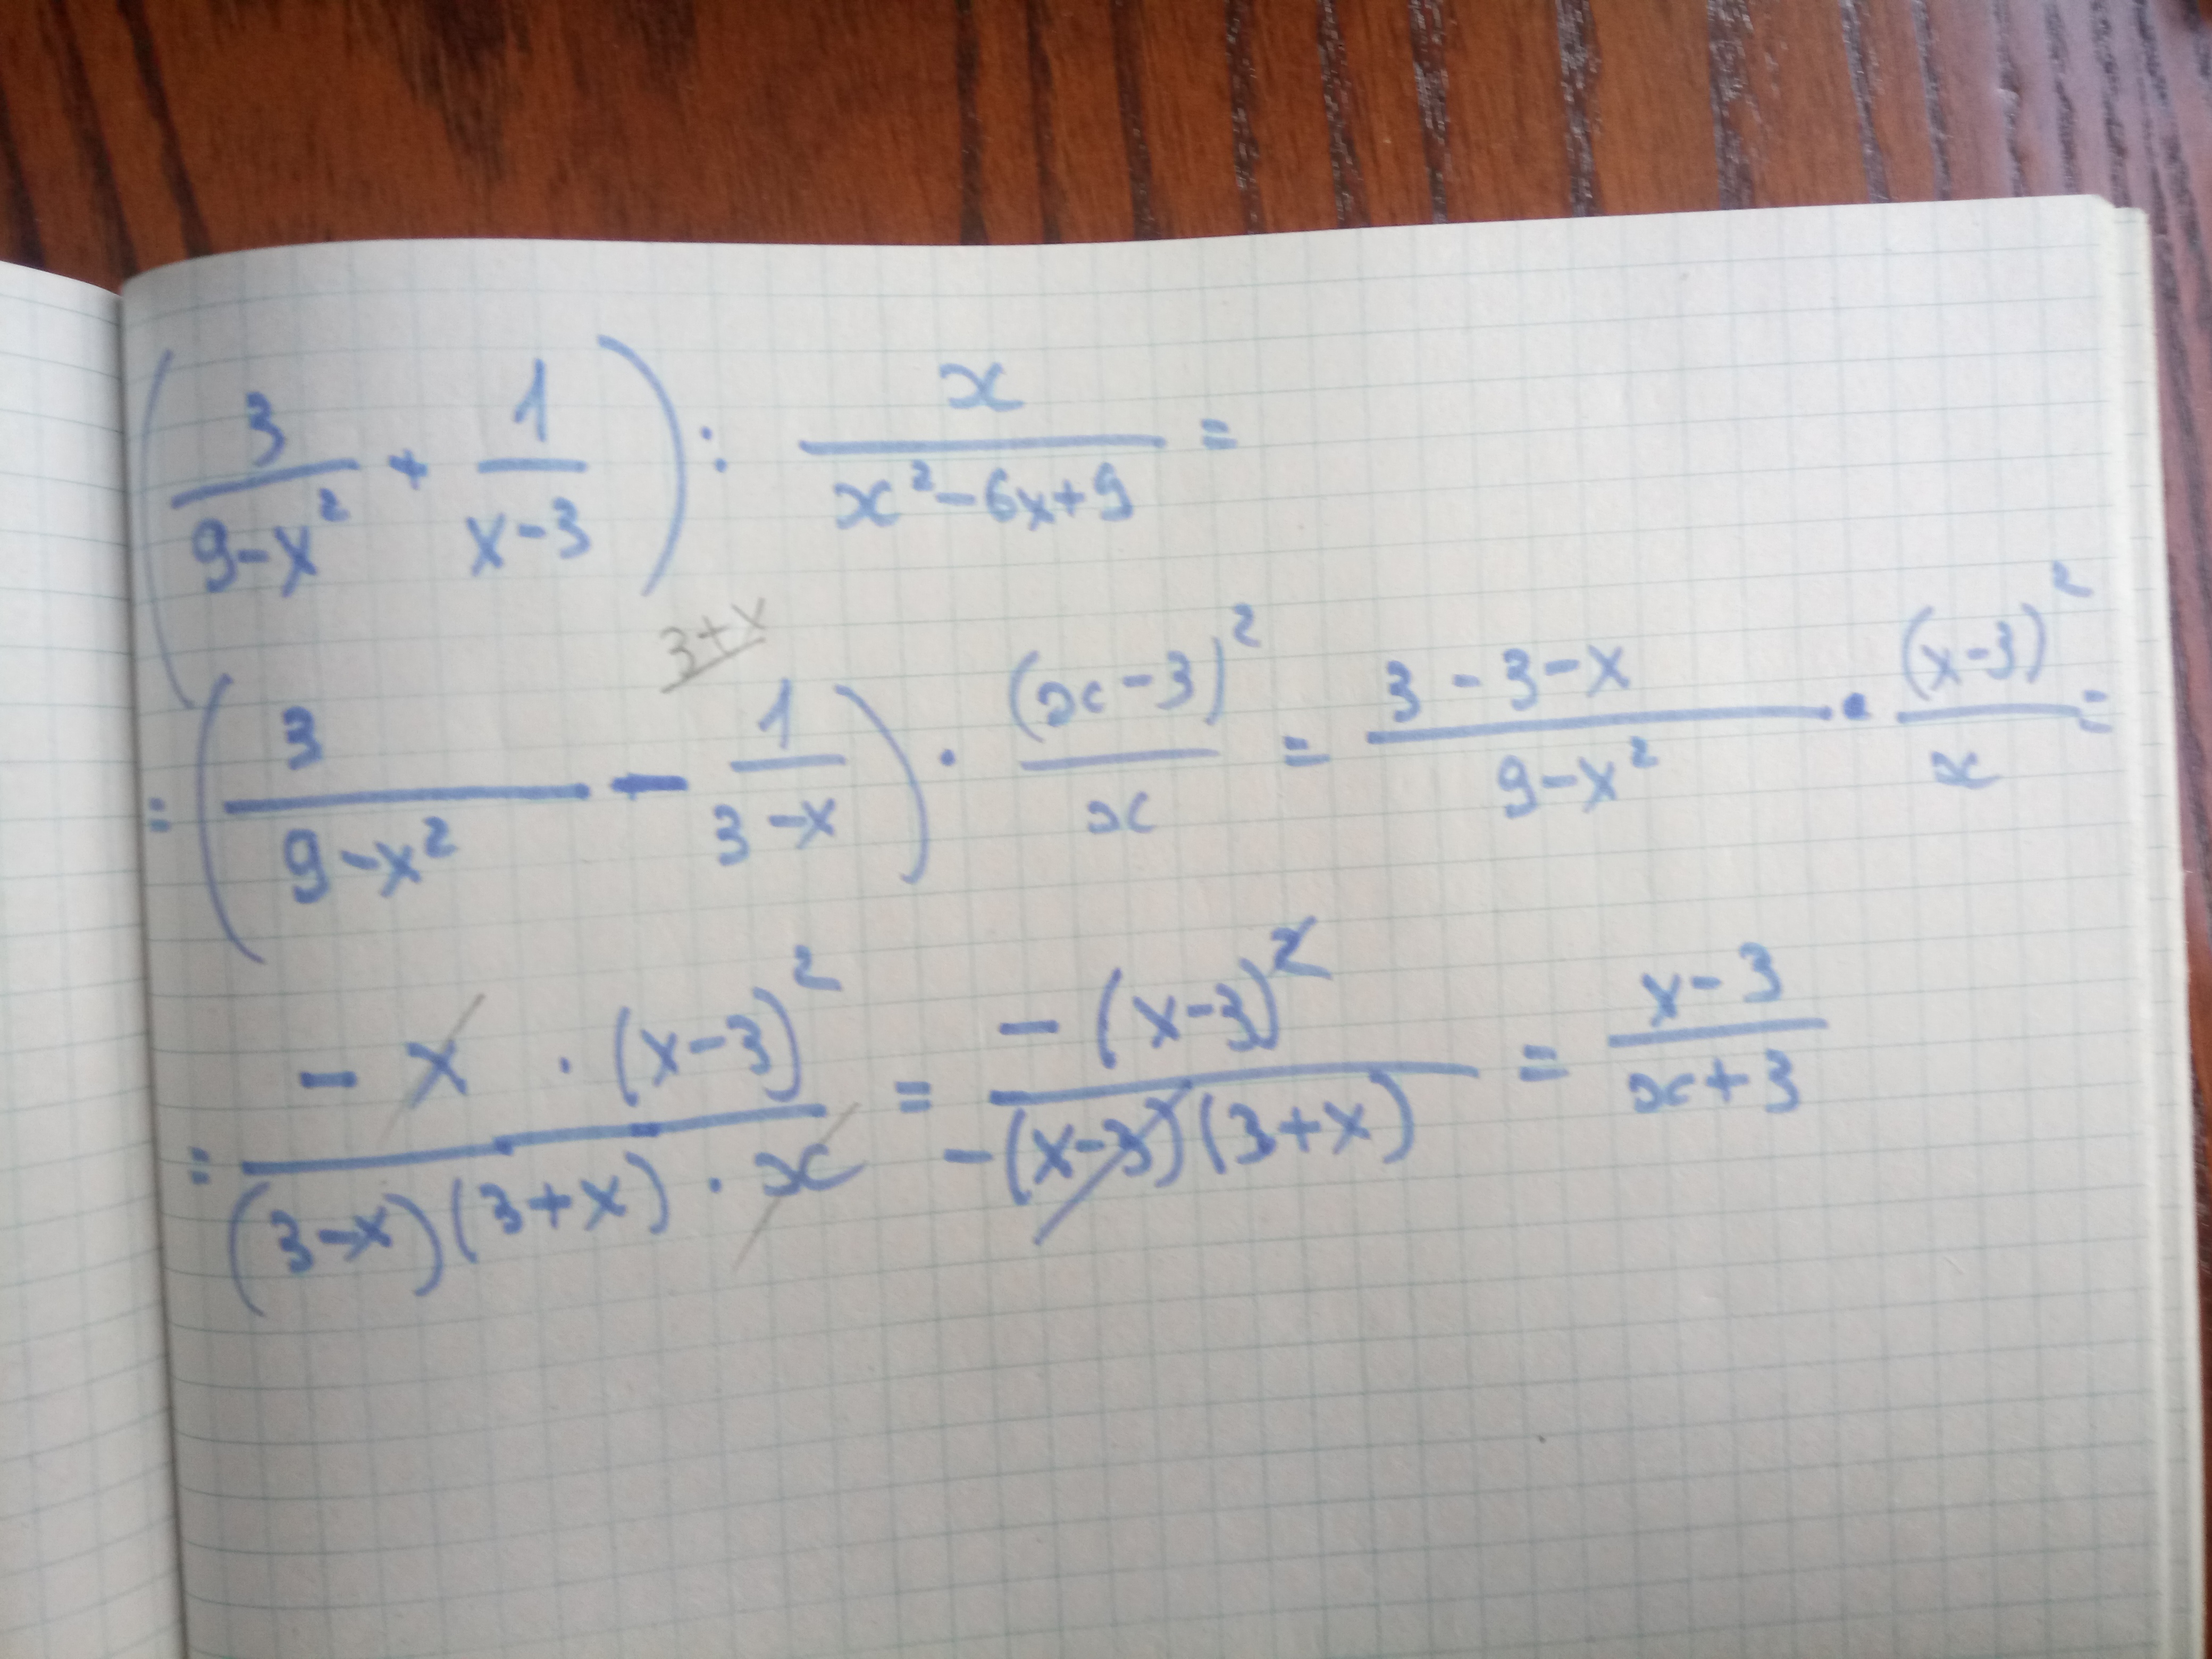 (3/(9-x²) + 1/(x-3)) : x/(x²-6x+9) =
3+x
= (3/(9-x²) - 1/(3-x)) · (x-3)²/x = (3-3-x)/(9-x²) · (x-3)²/x =
= (-x · (x-3)²)/((3-x)(3+x) · x) = (-(x-3)²)/(-(x-3)(3+x)) = (x-3)/(x+3)